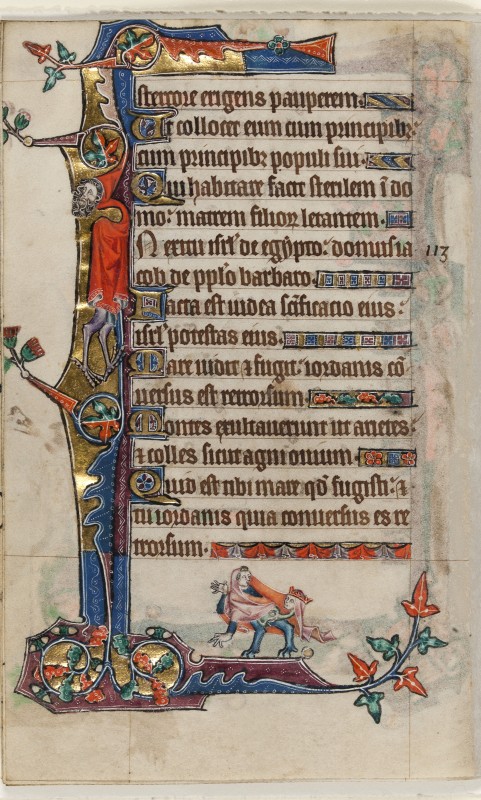 stercore erigens pauperem.
Et collocet eum cum principibꝫ:
cum principibꝫ populi sui.
Qui habitare facit sterilem ī do
mo: matrem filioꝝ letantem.
N exitu isrł de egypto: domus ia
cob de pplo barbaro.
Facta est iudea scīficacio eius:
isrł potestas eius.
Mare uidit ⁊ fugit: iordanis cō
uersus est retrorsum.
Montes exultauerunt ut arietes:
⁊ colles sicut agni ouium.
Quid est tibi mare qd̄ fugisti: ⁊
tu iordanis quia conuersus es re
trorsum.
113